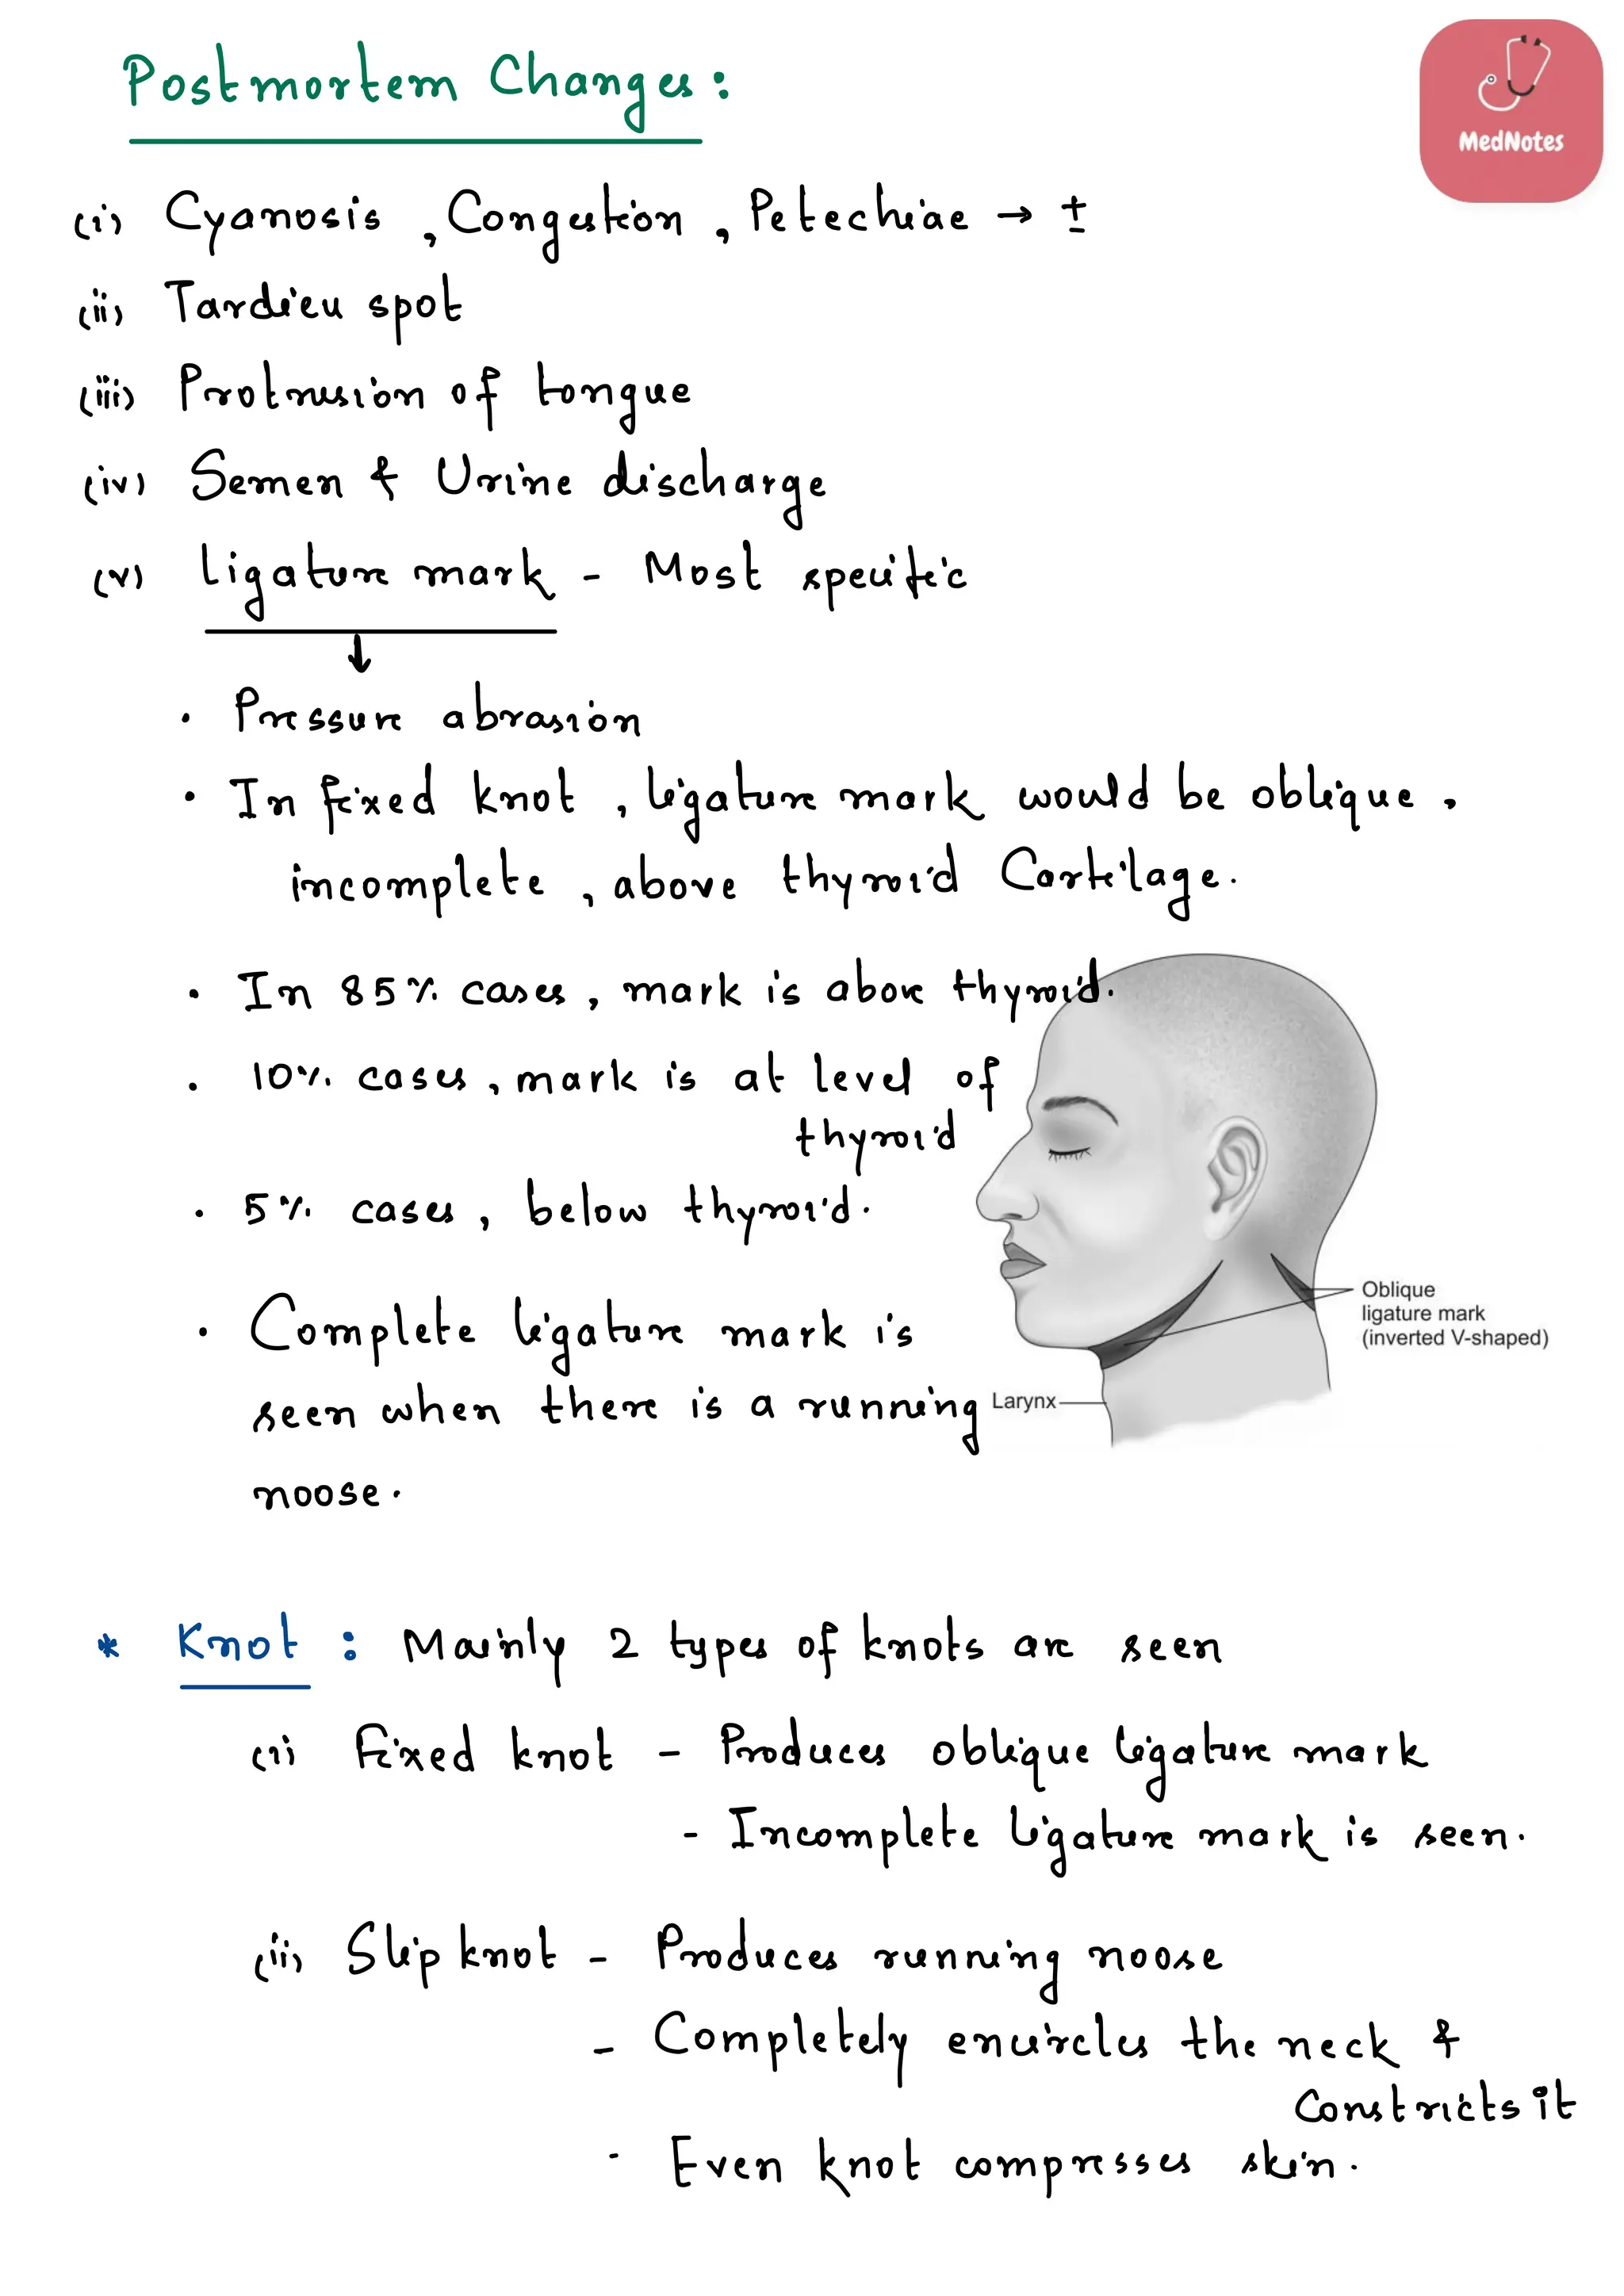 Postmortem Changes:
MedNotes
(i) Cyanosis, Congestion, Petechiae → ±
(ii) Tardieu spot
(iii) Protrusion of tongue
(iv) Semen & Urine discharge
(v) Ligature mark - Most specific
↓
• Pressure abrasion
• In fixed knot, ligature mark would be oblique,
incomplete, above thyroid Cartilage.
• In 85% cases, mark is above thyroid.
• 10% cases, mark is at level of
thyroid
• 5% cases, below thyroid.
• Complete ligature mark is
seen when there is a running
noose.
Oblique
ligature mark
(inverted V-shaped)
Larynx
* Knot: Mainly 2 types of knots are seen
(i) Fixed knot - Produces oblique ligature mark
- Incomplete ligature mark is seen.
(ii) Slip knot - Produces running noose
- Completely encircles the neck &
Constricts it
- Even knot compresses skin.